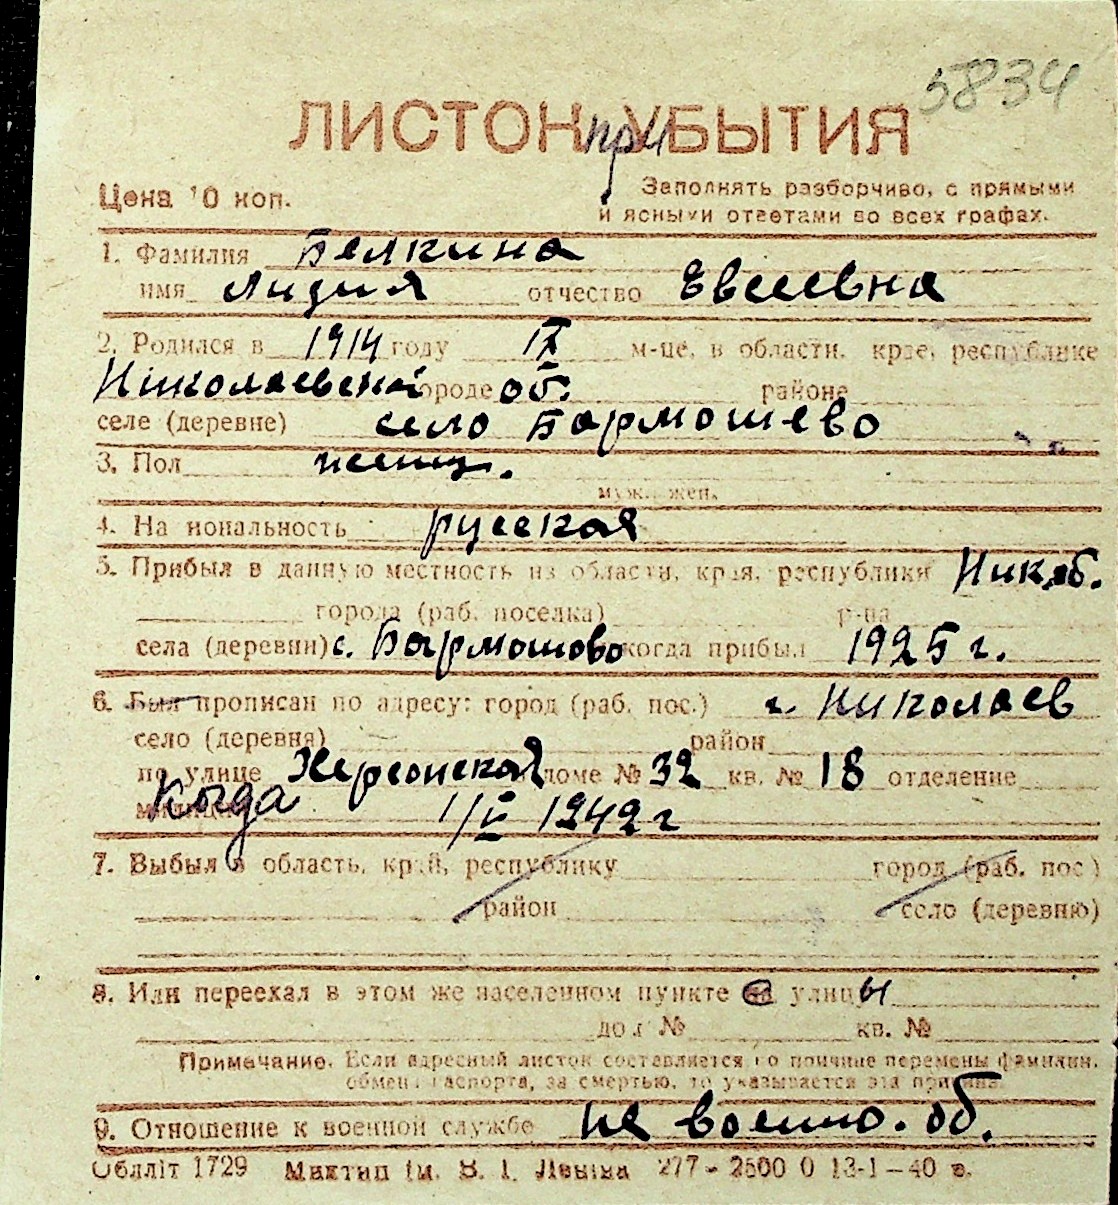 5834
ЛИСТОК при УБЫТИЯ
Цена 10 коп.
Заполнять разборчиво, с прямыми
и ясными ответами во всех графах.
1. Фамилия Белкина
имя Лидия отчество Евсеевна
2. Родился в 1914 году IX м-це, в области, крае, республике
Николаевской городе об. районе
селе (деревне) село Бармошево
3. Пол женщ.
муж. жен.
4. Национальность русская
5. Прибыл в данную местность из области, края, республики Ник. об.
города (раб. поселка) р-на
села (деревни) с. Бармошово когда прибыл 1925 г.
6. Был прописан по адресу: город (раб. пос.) г. Николаев
село (деревня) район
по улице Херсонская доме № 32 кв. № 18 отделение
Когда 1942 г
7. Выбыл в область, край, республику город (раб. пос.)
район село (деревню)
8. Или переехал в этом же населенном пункте улицы
дом № кв. №
Примечание. Если адресный листок составляется по причине перемены фамилии,
обмена паспорта, за смертью, то указывается эта причина.
9. Отношение к военной службе не военно. об.
Облліт 1729 Махтип ім. В. І. Леніна 277 - 2500 0 13-1-40 в.